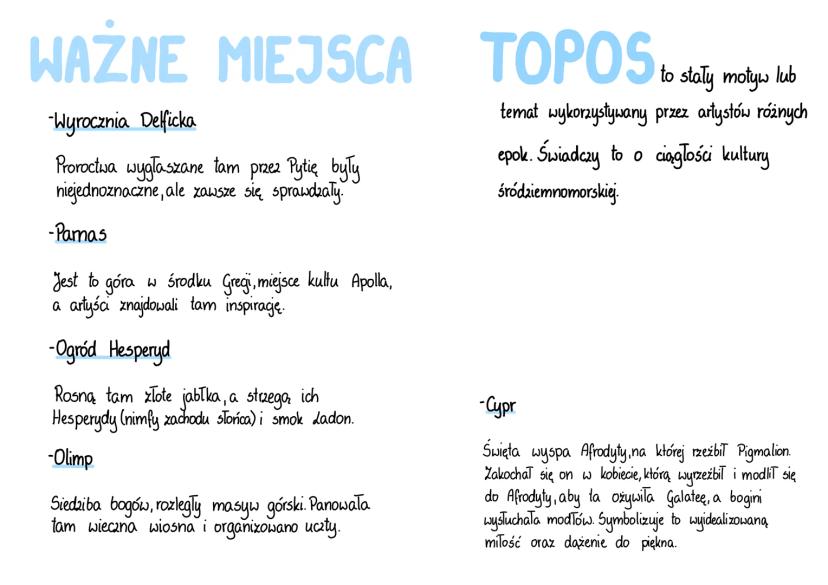 WAŻNE MIEJSCA
-Wyrocznia Delficka
Proroctwa wygłaszane tam przez Pytię były
niejednoznaczne, ale zawsze się sprawdzały.
-Parnas
Jest to góra w środku Grecji, miejsce kultu Apolla,
a artyści znajdowali tam inspirację.
-Ogród Hesperyd
Rosną tam złote jabłka, a strzegą ich
Hesperydy (nimfy zachodu słońca) i smok Ladon.
-Olimp
Siedziba bogów, rozległy masyw górski. Panowała
tam wieczna wiosna i organizowano uczty.
TOPOS to stały motyw lub
temat wykorzystywany przez artystów różnych
epok. Świadczy to o ciągłości kultury
śródziemnomorskiej.
-Cypr
Święta wyspa Afrodyty, na której rzeźbił Pigmalion.
Zakochał się on w kobiecie, którą wyrzeźbił i modlił się
do Afrodyty, aby ta ożywiła Galateę, a bogini
wysłuchała modłów. Symbolizuje to wyidealizowaną
miłość oraz dążenie do piękna.